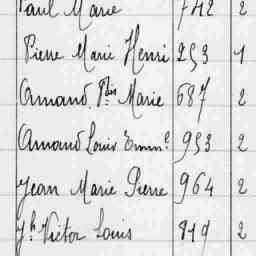 Paul Marie 742 2
Pierre Marie Henri 253 1
Armand Marie 687 2
Armand Louis Emm.e 953 2
Jean Marie Pierre 964 2
Jh Victor Louis 819 2